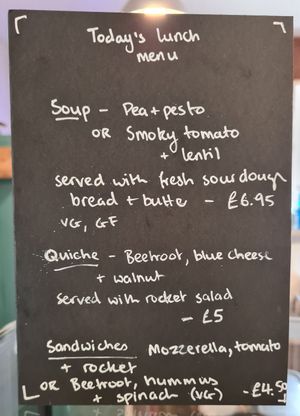 Today's lunch
menu
Soup - Pea + pesto
OR Smoky tomato
+ lentil
served with fresh sourdough
bread + butte - £6.95
VG, GF
Quiche - Beetroot, blue cheese
+ walnut
served with rocket salad
- £5
Sandwiches Mozzerella, tomato
+ rocket
OR Beetroot, hummus
+ spinach (VG) - £4.50